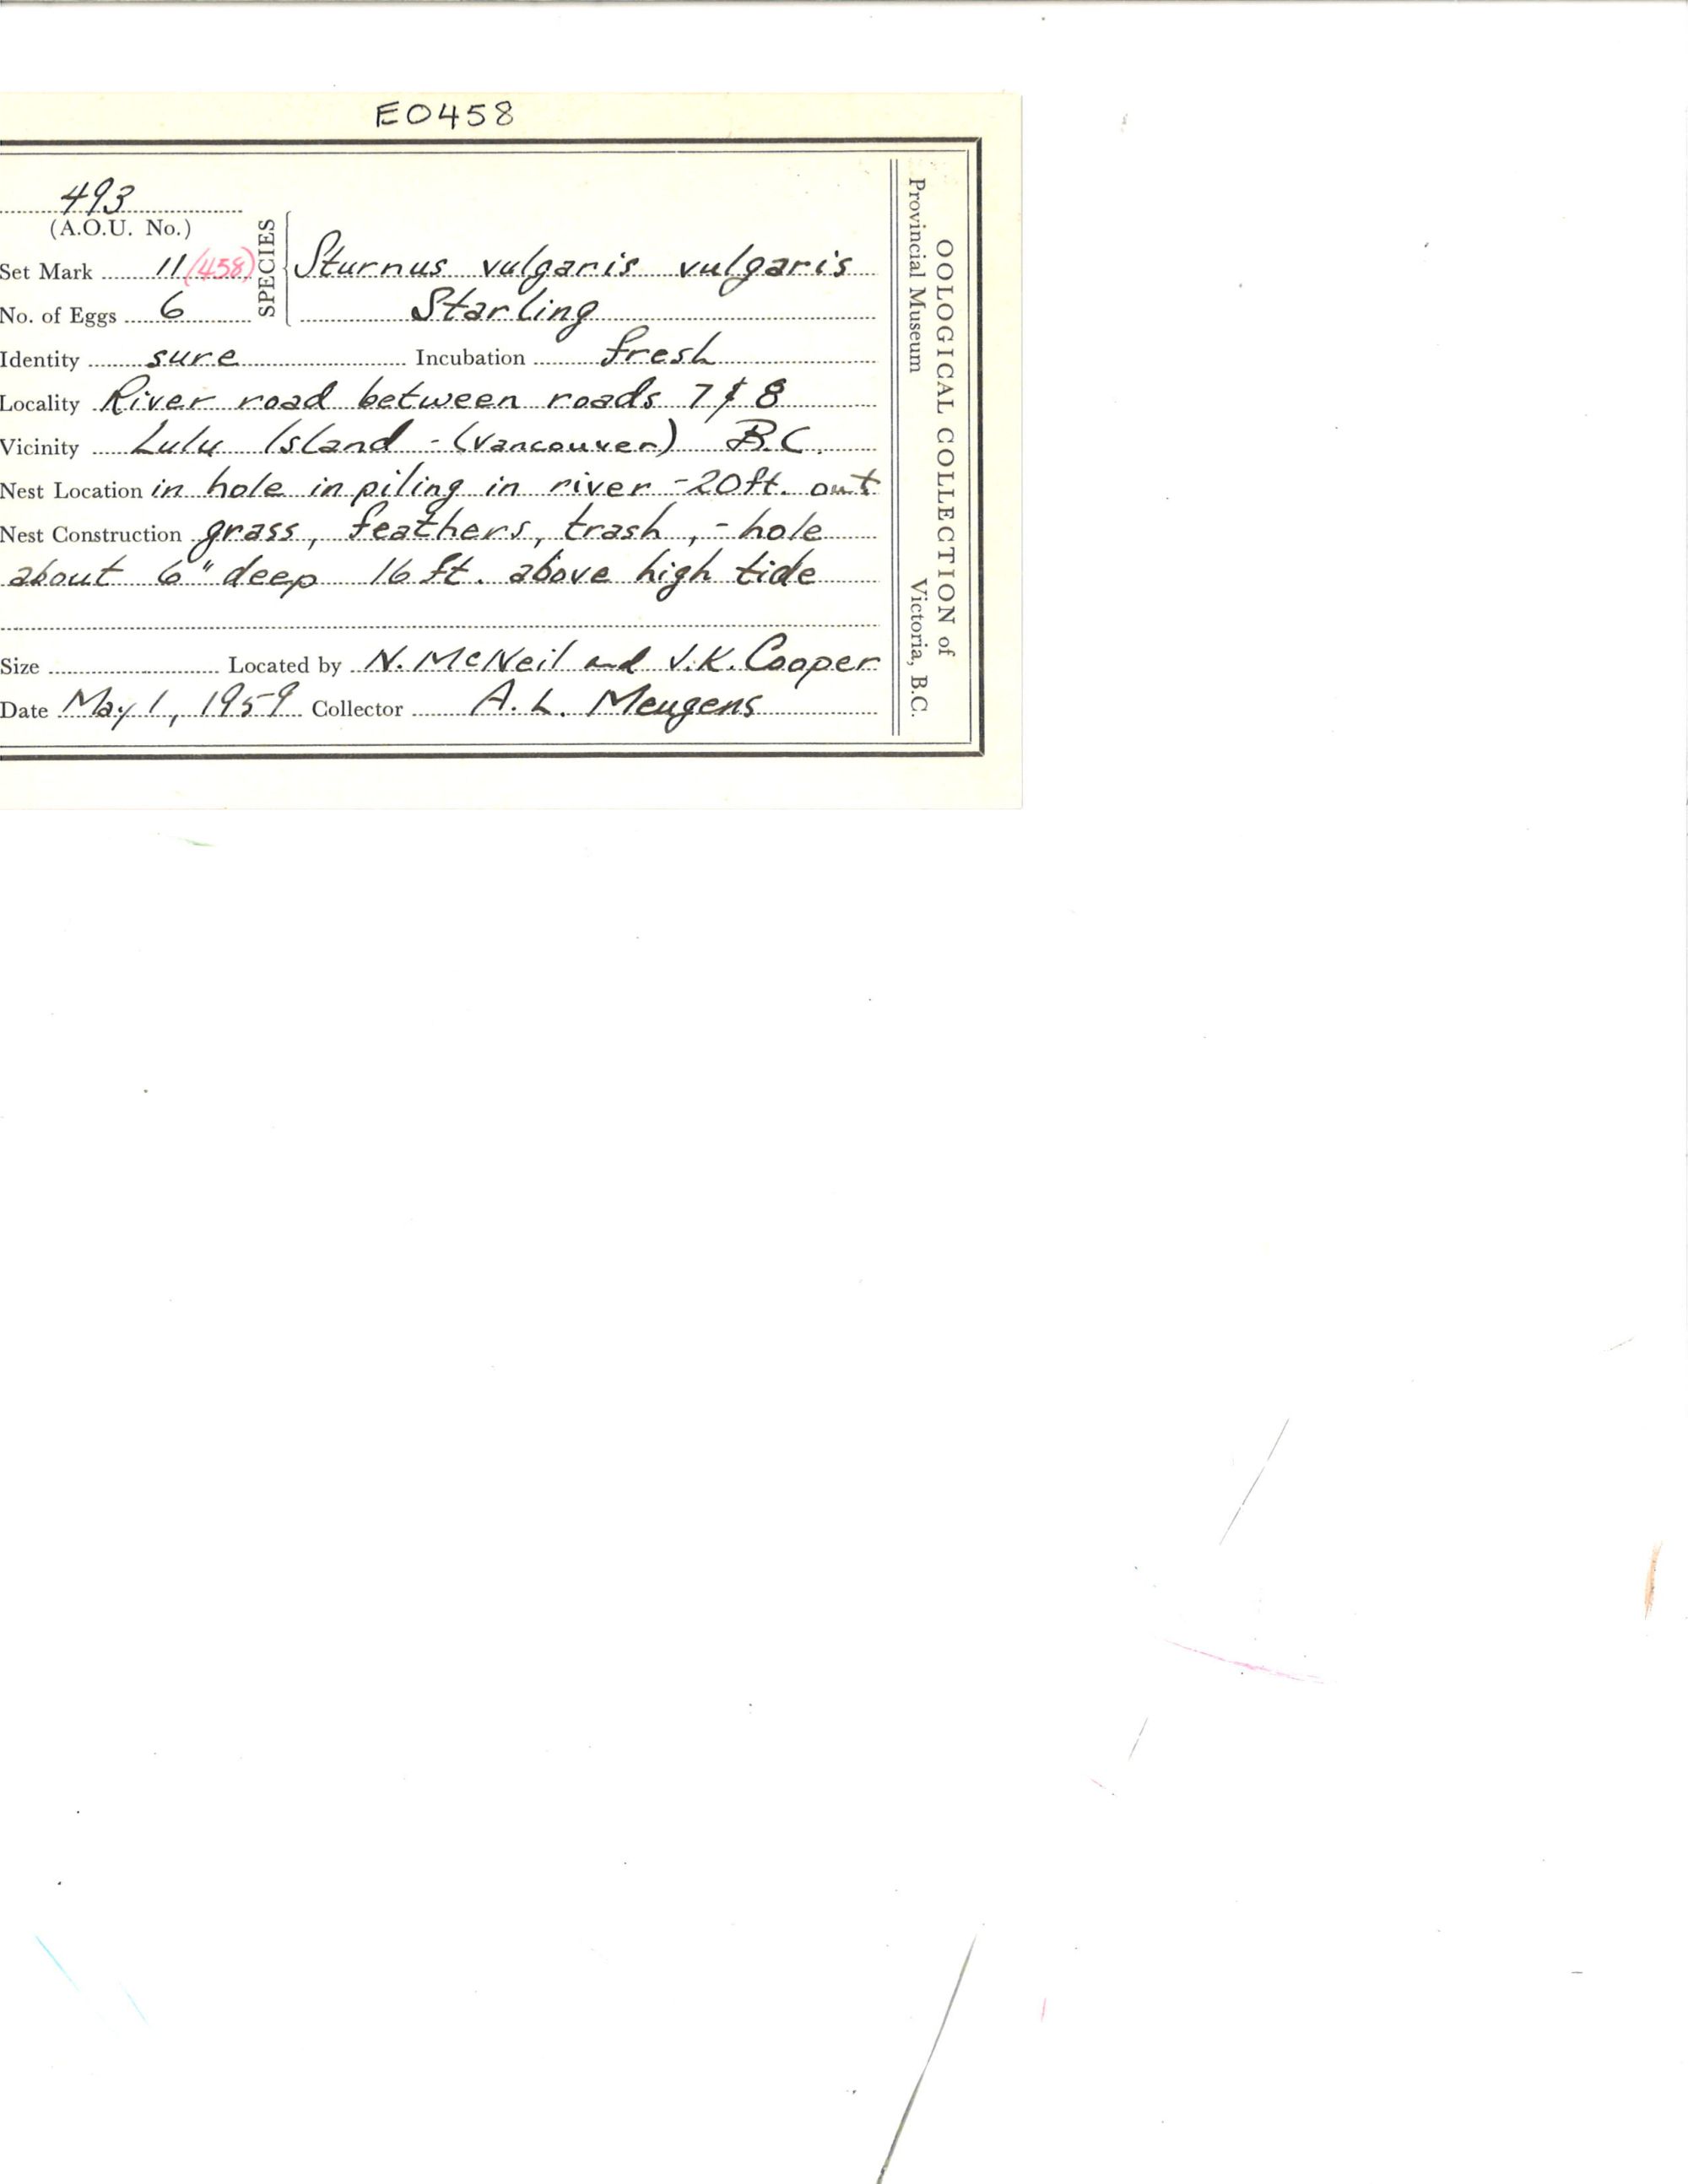 E0458
493
(A.O.U. No.)
Set Mark 11 (458)
No. of Eggs 6
SPECIES
Sturnus vulgaris vulgaris
Starling
Identity sure Incubation fresh
Locality River road between roads 7 & 8
Vicinity Lulu Island - (Vancouver) B.C.
Nest Location in hole in piling in river - 20ft. out
Nest Construction grass, feathers, trash, - hole
about 6" deep 16 ft. above high tide
Size Located by N. McNeil and J.K. Cooper
Date May 1, 1959 Collector A. L. Meugens
OOLOGICAL COLLECTION of
Provincial Museum Victoria, B.C.